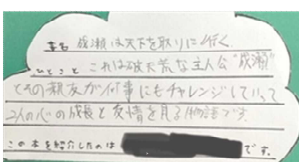 書名 成瀬は天下を取りに行く
ひとこと これは破天荒な主人公"成瀬"
とその親友が何事にもチャレンジしていって
2人の心の成長と友情を見る物語です
この本を紹介したのは です。